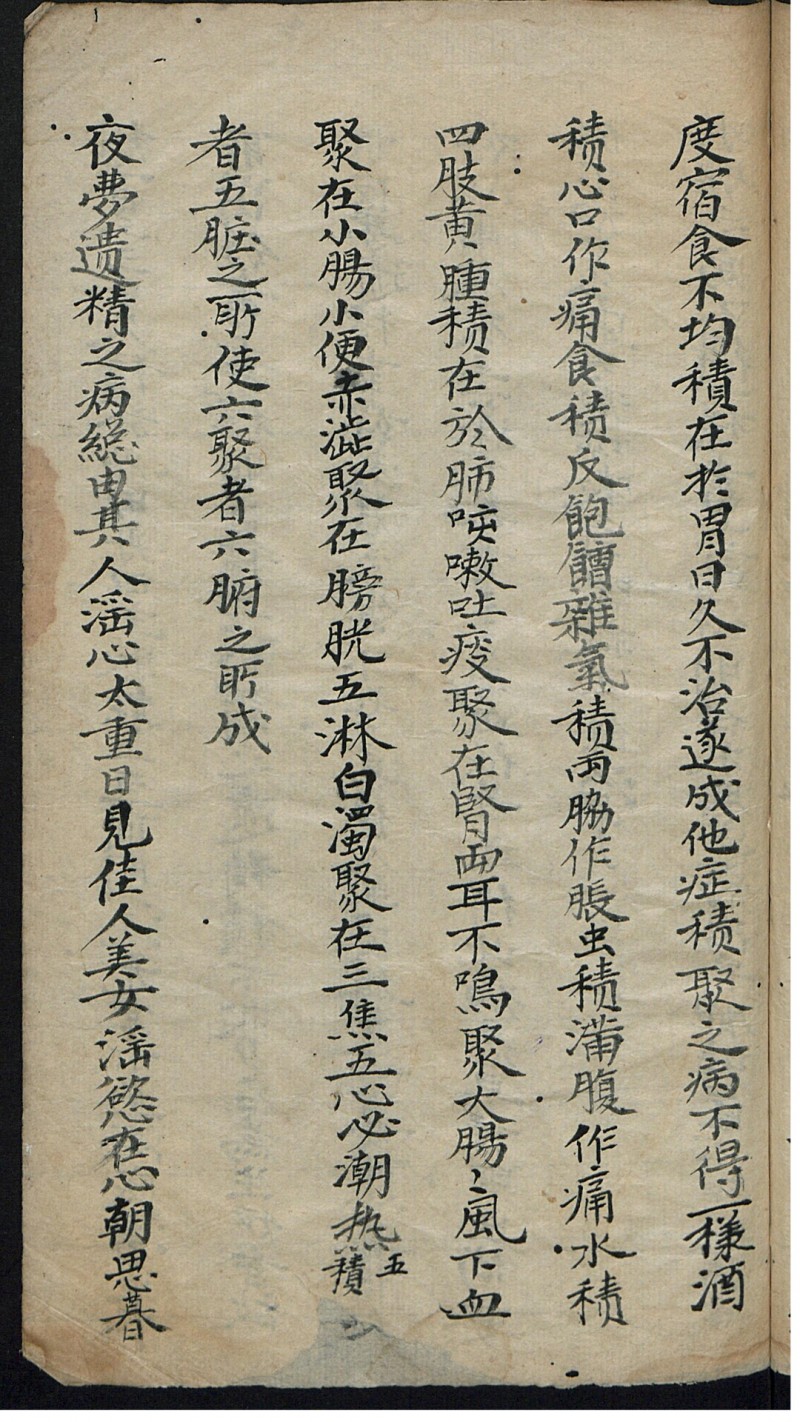 度宿食不均積在於胃日久不治遂成他症積聚之病不得一樣酒
積心口作痛食積反飽饋雜氣積両脇作脹虫積满腹作痛水積
四肢黄腫積在於肺咳嗽吐痰聚在腎両耳不鳴聚大腸〻風下血
聚在小腸小便赤澁聚在膀胱五淋白濁聚在三焦五心必潮热五積
者五脏之所使六聚者六腑之所成
夜夢遗精之病総由其人淫心太重日見佳人美女淫慾在心朝思暮